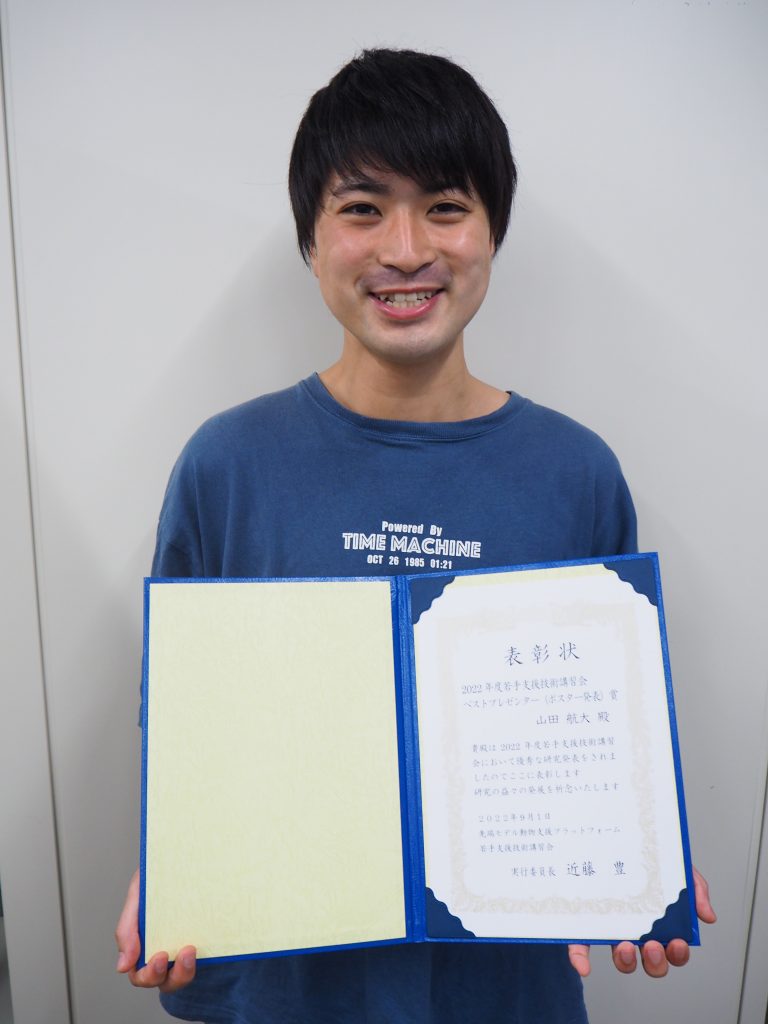 Powered By
TIME MACHINE
OCT 26 1985 01:21
表彰状
2022年度若手支援技術講習会
ベストプレゼンター（ポスター発表）賞
山田 航大 殿
貴殿は2022年度若手支援技術講習
会において優秀な研究発表をされま
したのでここに表彰します
研究の益々の発展を祈念いたします
２０２２年９月１日
先端モデル動物支援プラットフォーム
若手支援技術講習会
実行委員長 近藤 豊